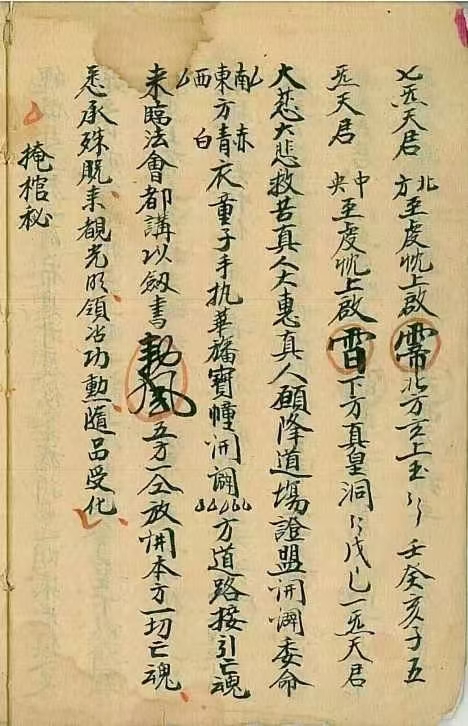 七炁天君 北方 至虔忱上啟 霄 北方玄上玉〻 壬癸亥子五
炁天君 中央 至虔忱上啟 雷 下方真皇洞〻戊己一炁天君
大慈大悲救苦真人大惠真人願降道塲證盟開闢委命
南 東方青 赤 西 白 衣童子手执華旛寳幢開闢 方道路接引亡魂
来臨法會都講以劔書 五方一仝放開本方一切亡魂
悉承殊脱来覩光明領沾功勳隨品受化
掩棺秘